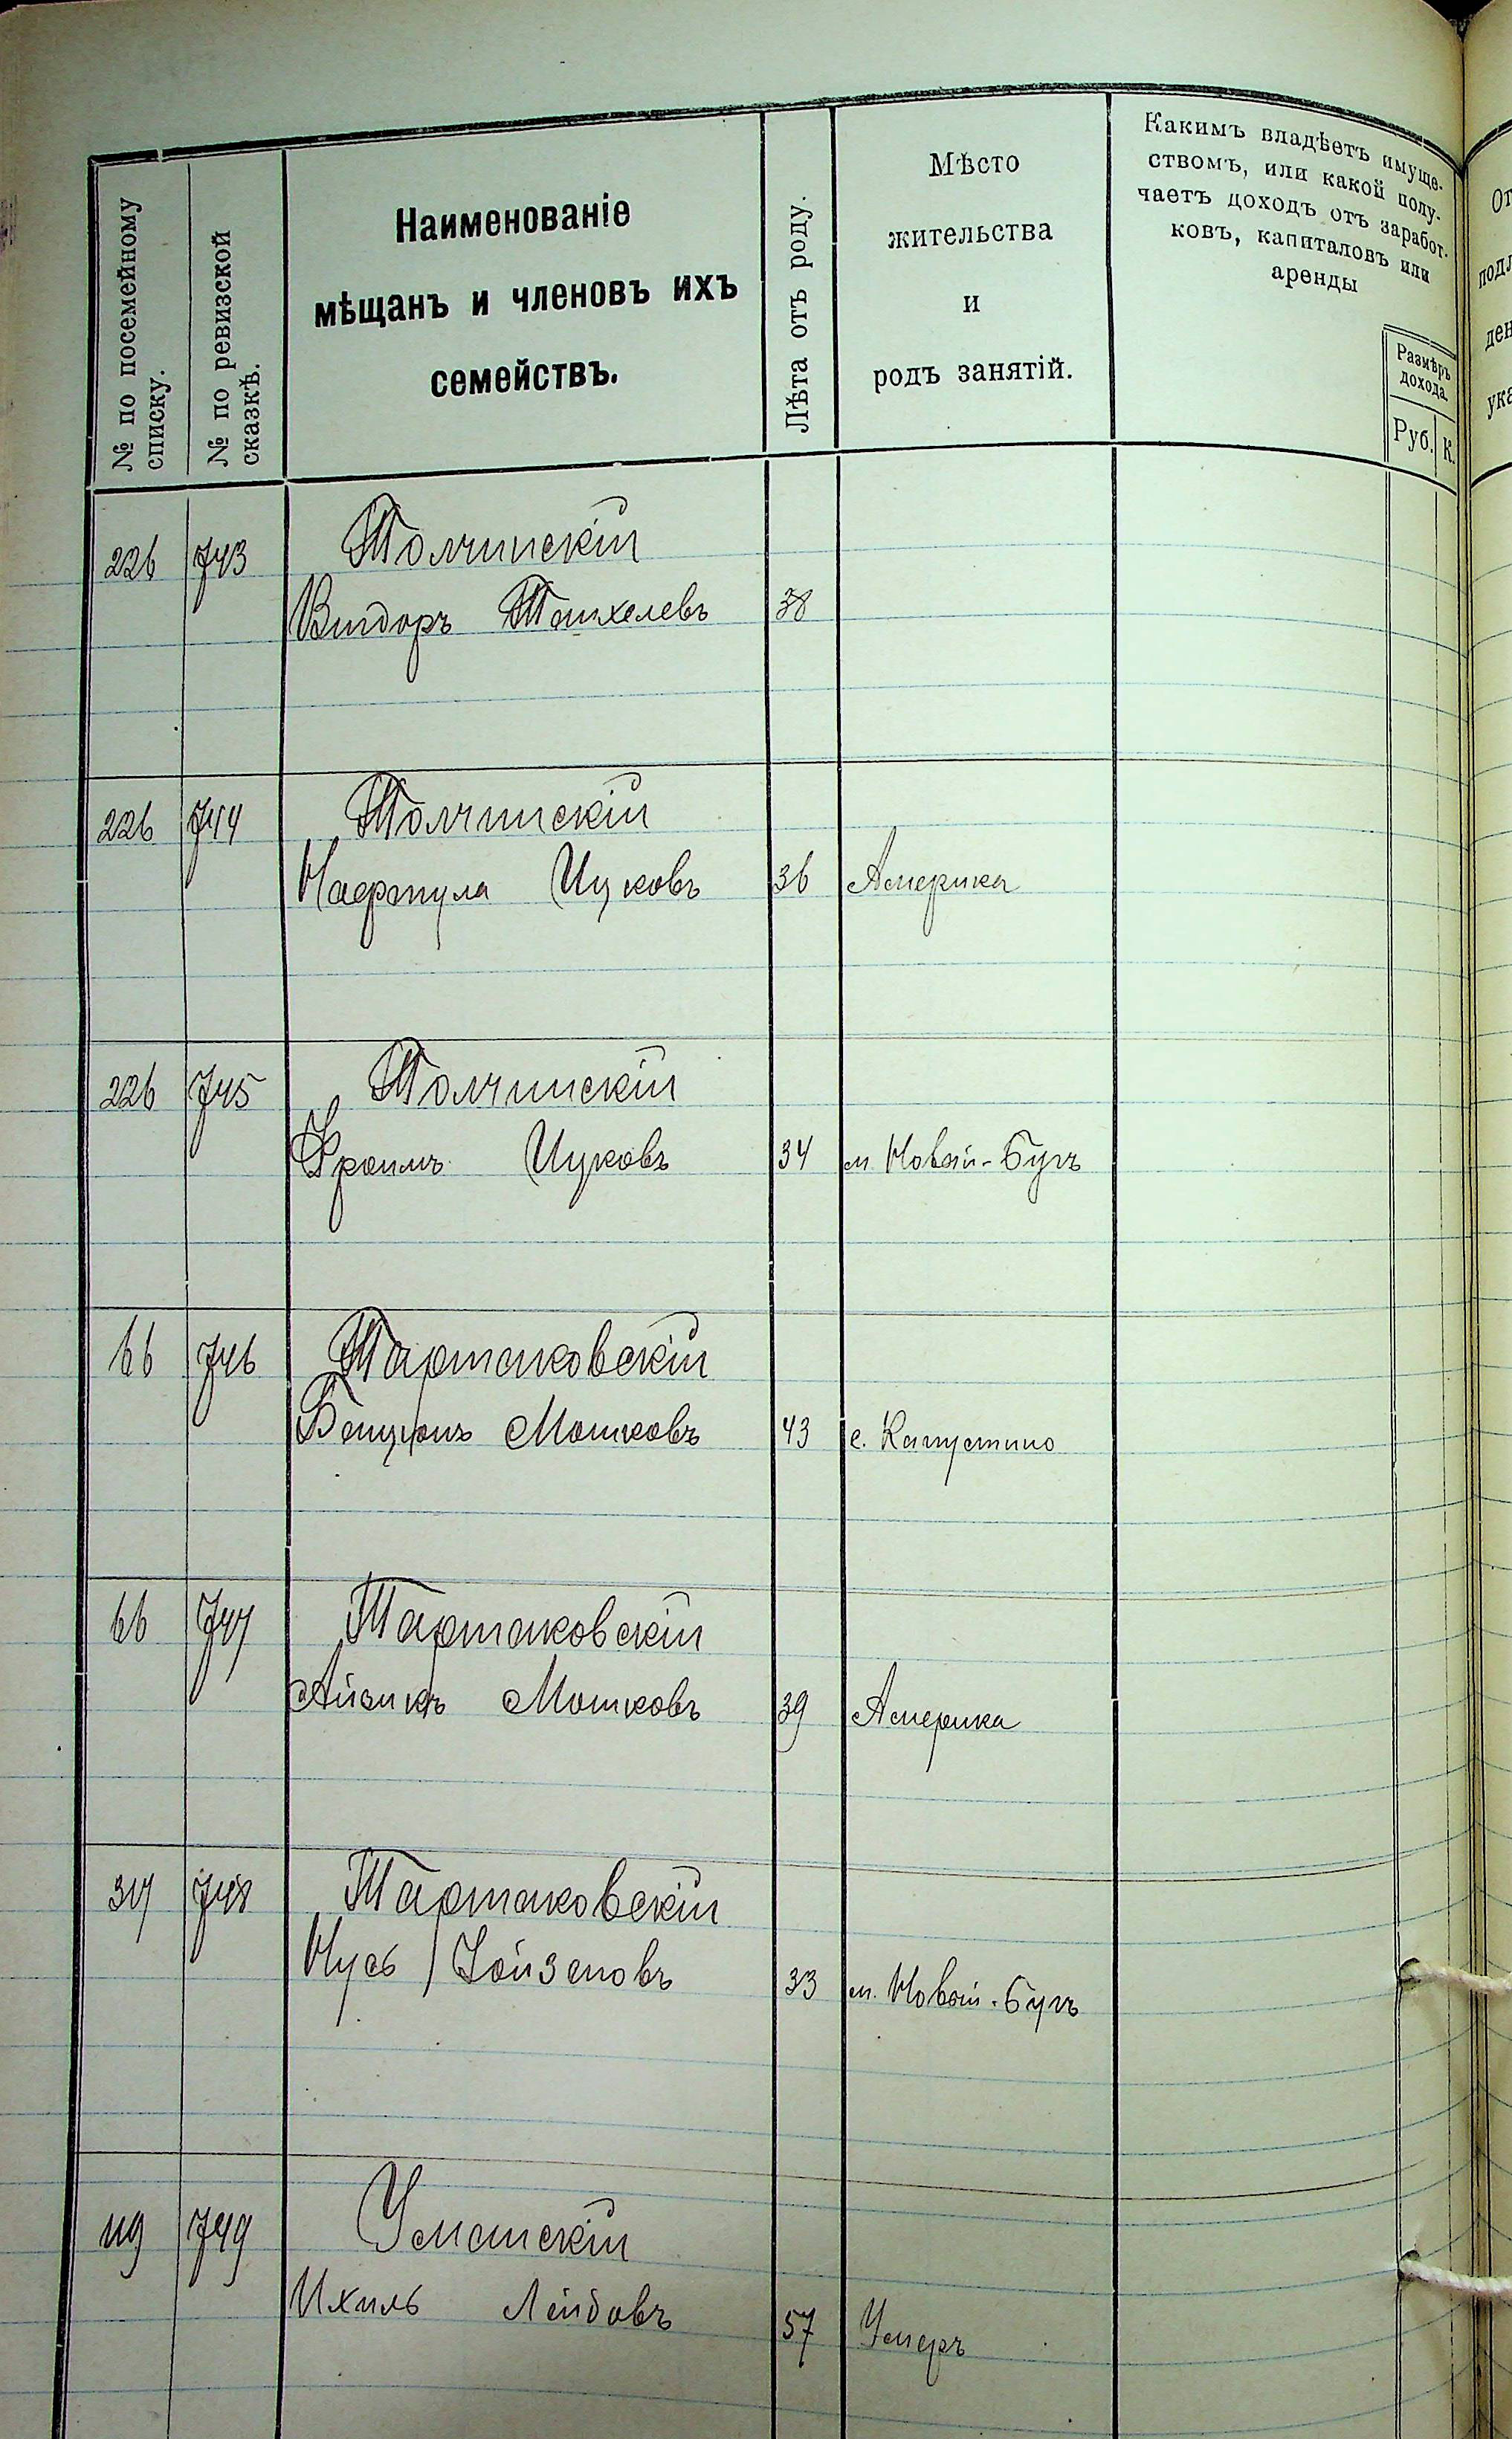 № по посемейному
списку.
№ по ревизской
сказкѣ.
Наименованіе
мѣщанъ и членовъ ихъ
семействъ.
Лѣта отъ роду.
Мѣсто
жительства
и
родъ занятій.
Какимъ владѣетъ имуще-
ствомъ, или какой полу-
чаетъ доходъ отъ заработ-
ковъ, капиталовъ или
аренды
Размѣръ
дохода.
Руб. К.
226 743 Толчинскій
38
226 744 Толчинскій
Нафтула Ицковъ 36 Америка
226 745 Толчинскій
Фроимъ Ицковъ 34 м. Новый-Бугъ
66 746 Тартаковскій
Бенціонъ Мошковъ 43 с. Капустино
66 747 Тартаковскій
Айзикъ Мошковъ 39 Америка
317 748 Тартаковскій
Нусь 33 м. Новый-Бугъ
119 749 Уманскій
Ихиль Лейбовъ 57 Умеръ